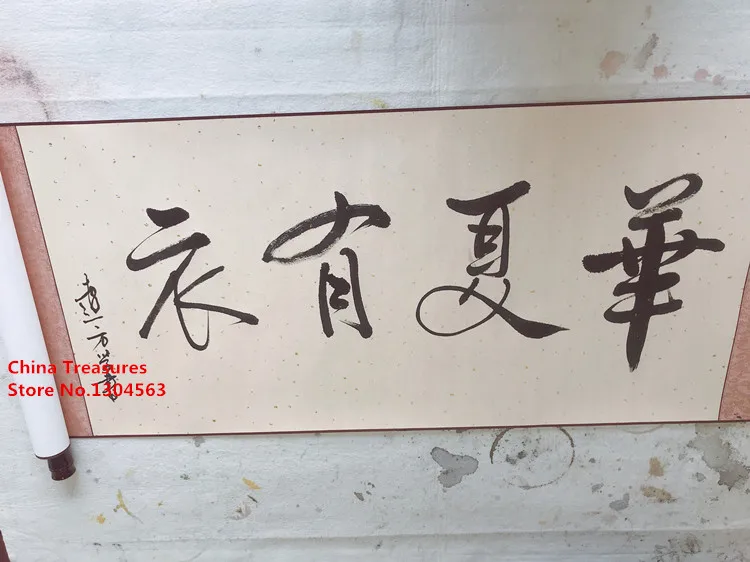 華夏有衣
China Treasures
Store No.1304563